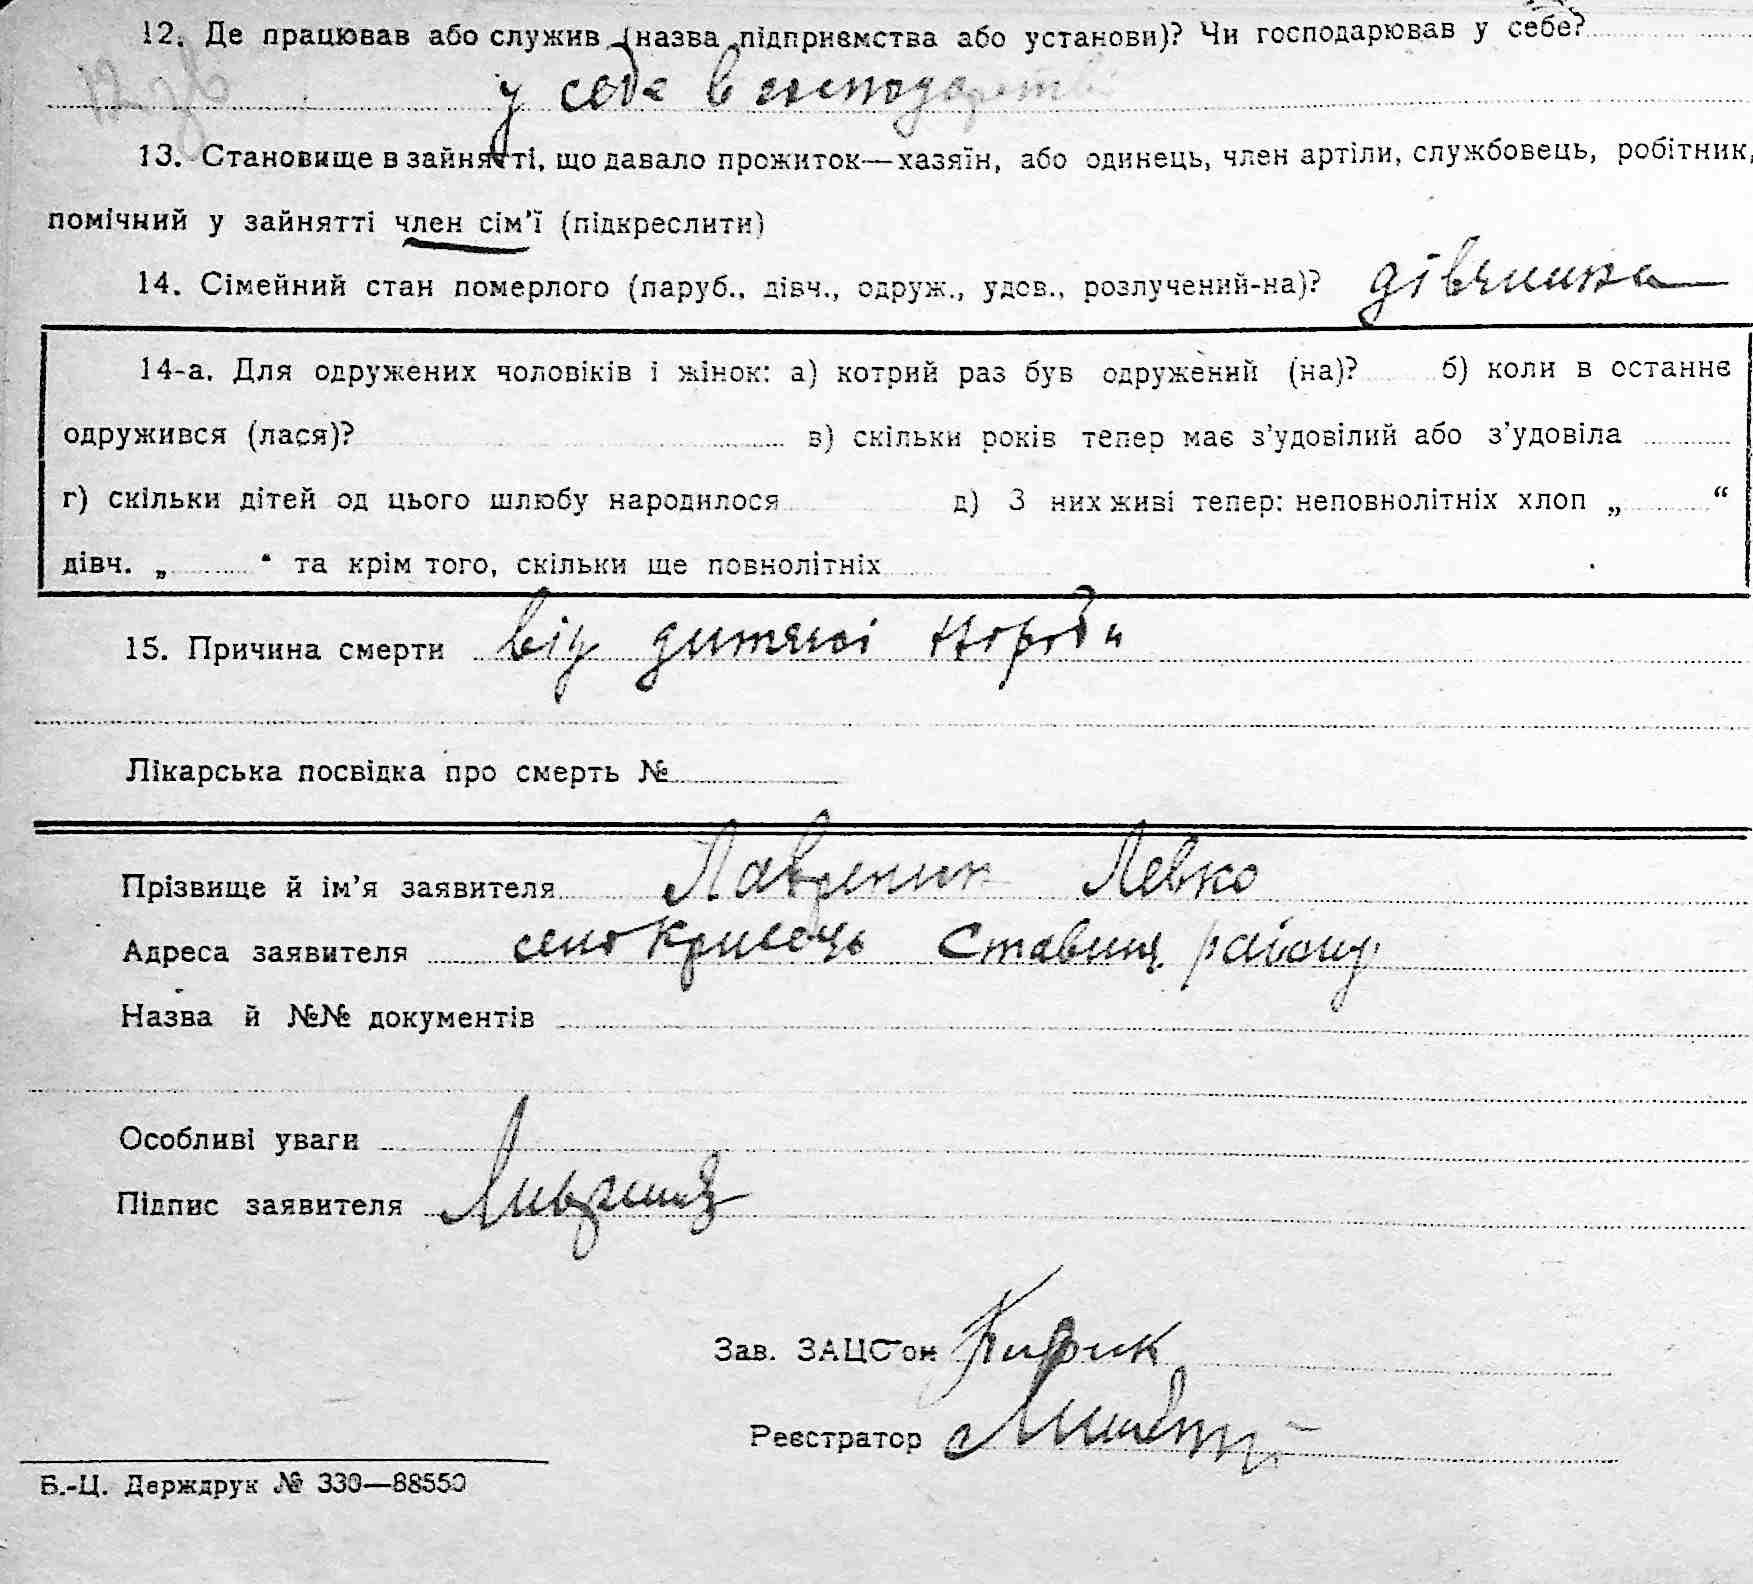 12. Де працював або служив (назва підприємства або установи)? Чи господарював у себе?
у себе в господарстві
13. Становище в зайнятті, що давало прожиток—хазяїн, або одинець, член артіли, службовець, робітник,
помічний у зайнятті член сім'ї (підкреслити)
14. Сімейний стан померлого (паруб., дівч., одруж., удов., розлучений-на)? дівчинка
14-а. Для одружених чоловіків і жінок: а) котрий раз був одружений (на)? б) коли в останнє
одружився (лася)? в) скільки років тепер має з'удовілий або з'удовіла
г) скільки дітей од цього шлюбу народилося д) З них живі тепер: неповнолітніх хлоп „ “
дівч. „ “ та крім того, скільки ще повнолітніх
15. Причина смерти від дитячої хороби
Лікарська посвідка про смерть №
Прізвище й ім'я заявителя Левко
Адреса заявителя село Ставищ. району
Назва й №№ документів
Особливі уваги
Підпис заявителя
Зав. ЗАЦС'ом
Реєстратор
Б.-Ц. Держдрук № 330—88550